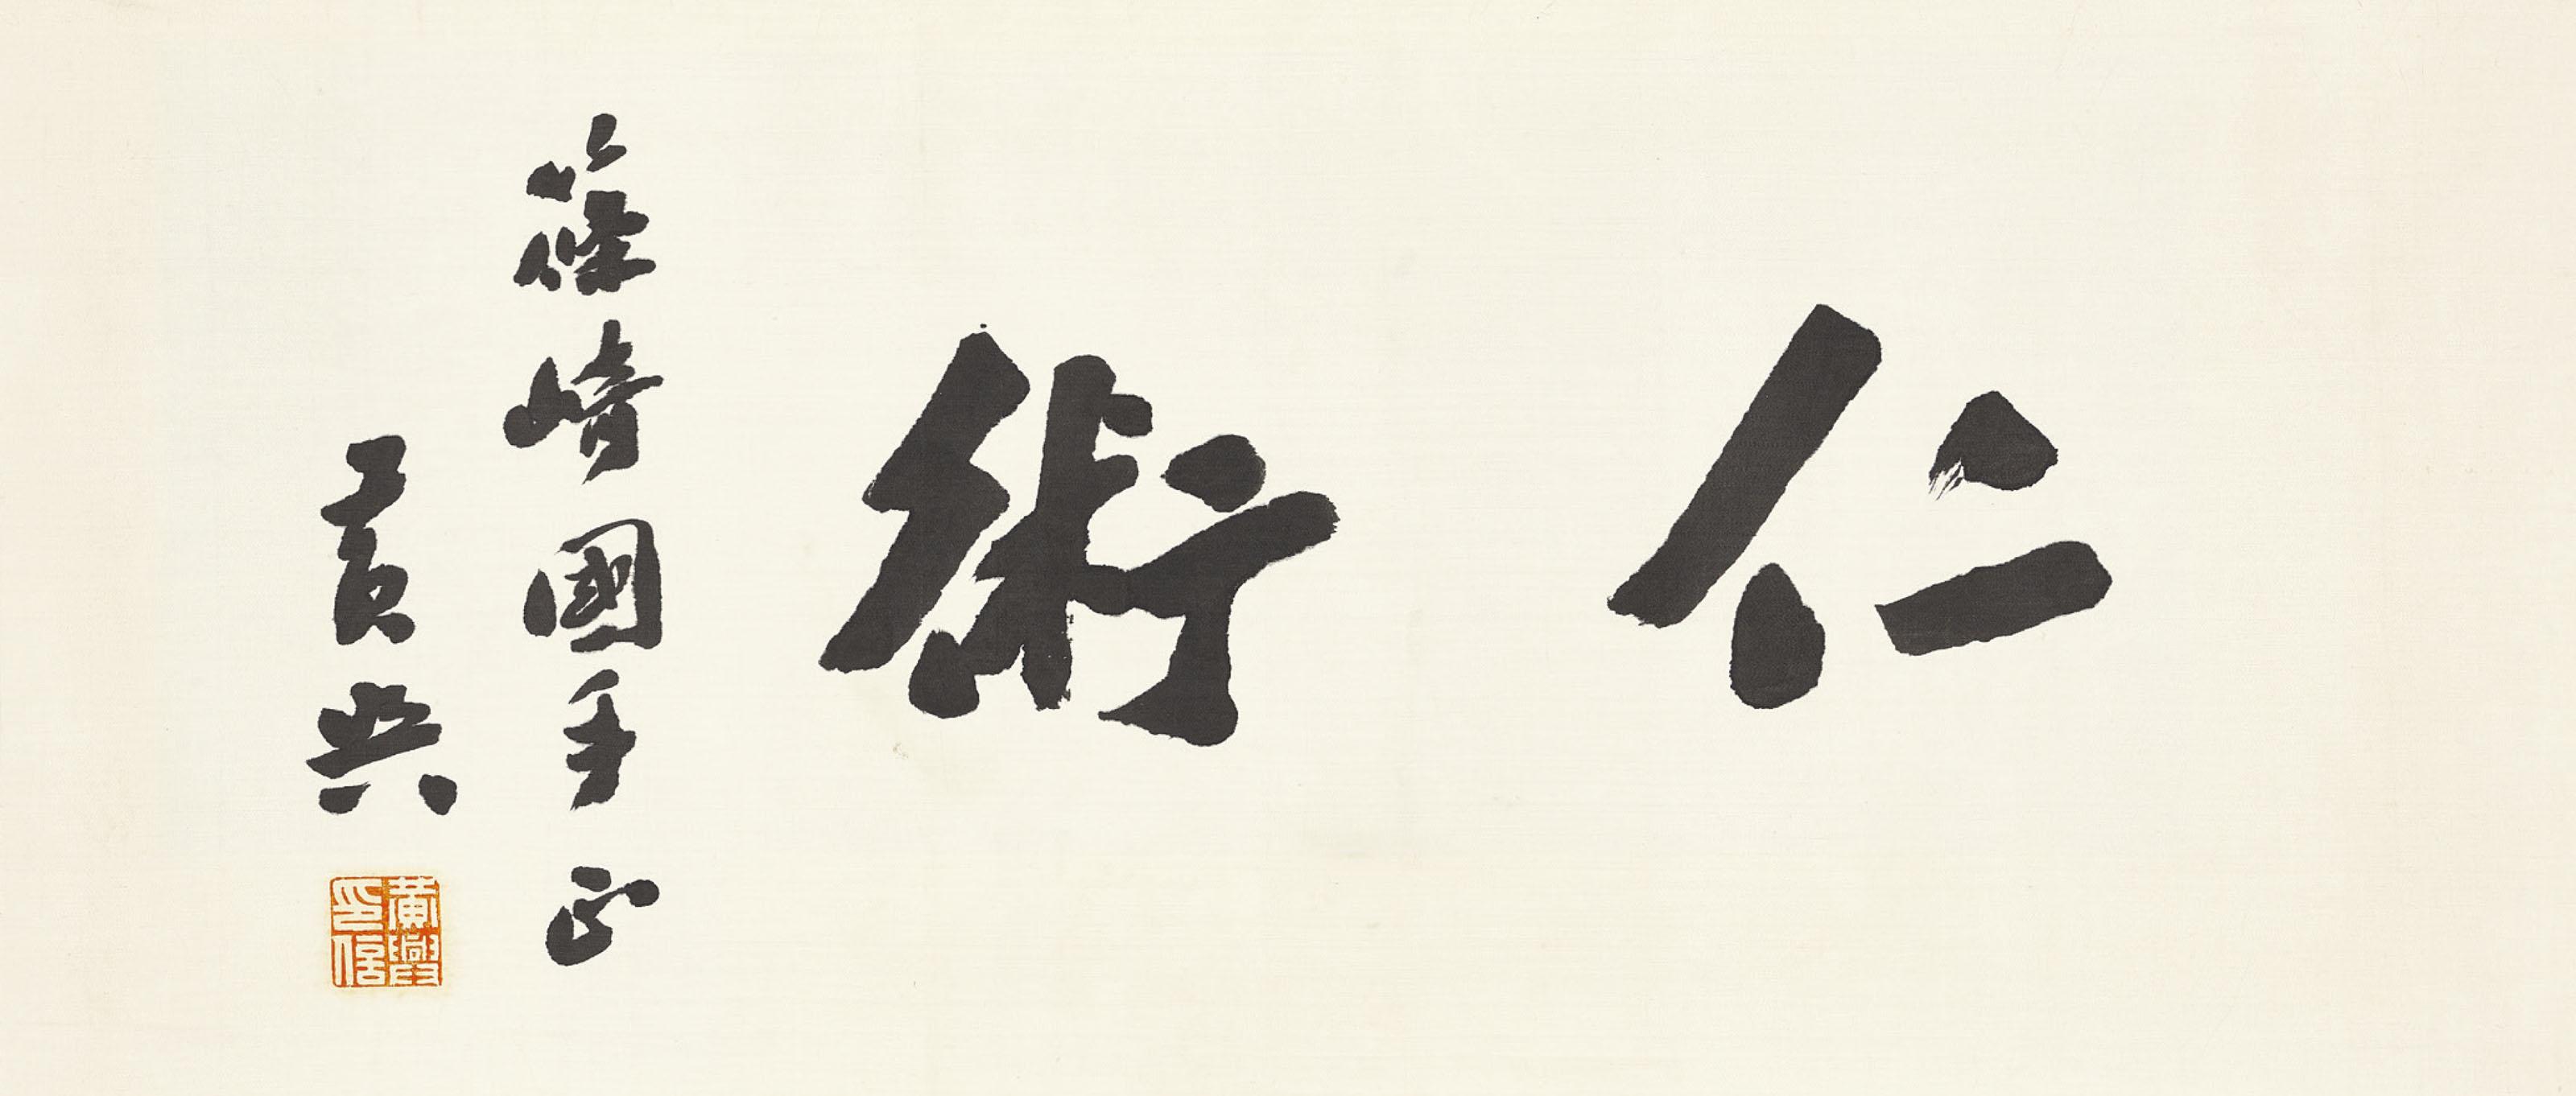 仁術
篠崎國手正
黃興
黃興
印信